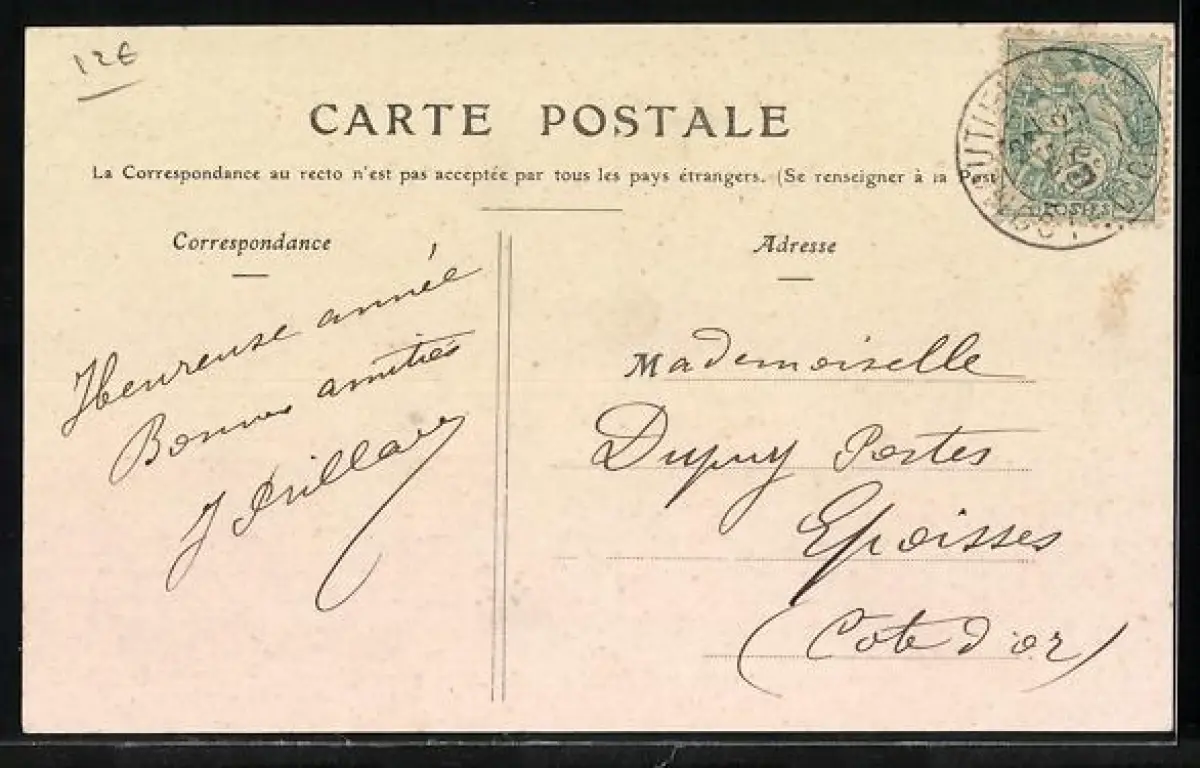 12€
CARTE POSTALE
La Correspondance au recto n'est pas acceptée par tous les pays étrangers. (Se renseigner à la Post
Correspondance
Adresse
Heureuse année
Bonnes amitiés
J
Mademoiselle
Dupuy Postes
Epoisses
(Côte d'or)
POSTES